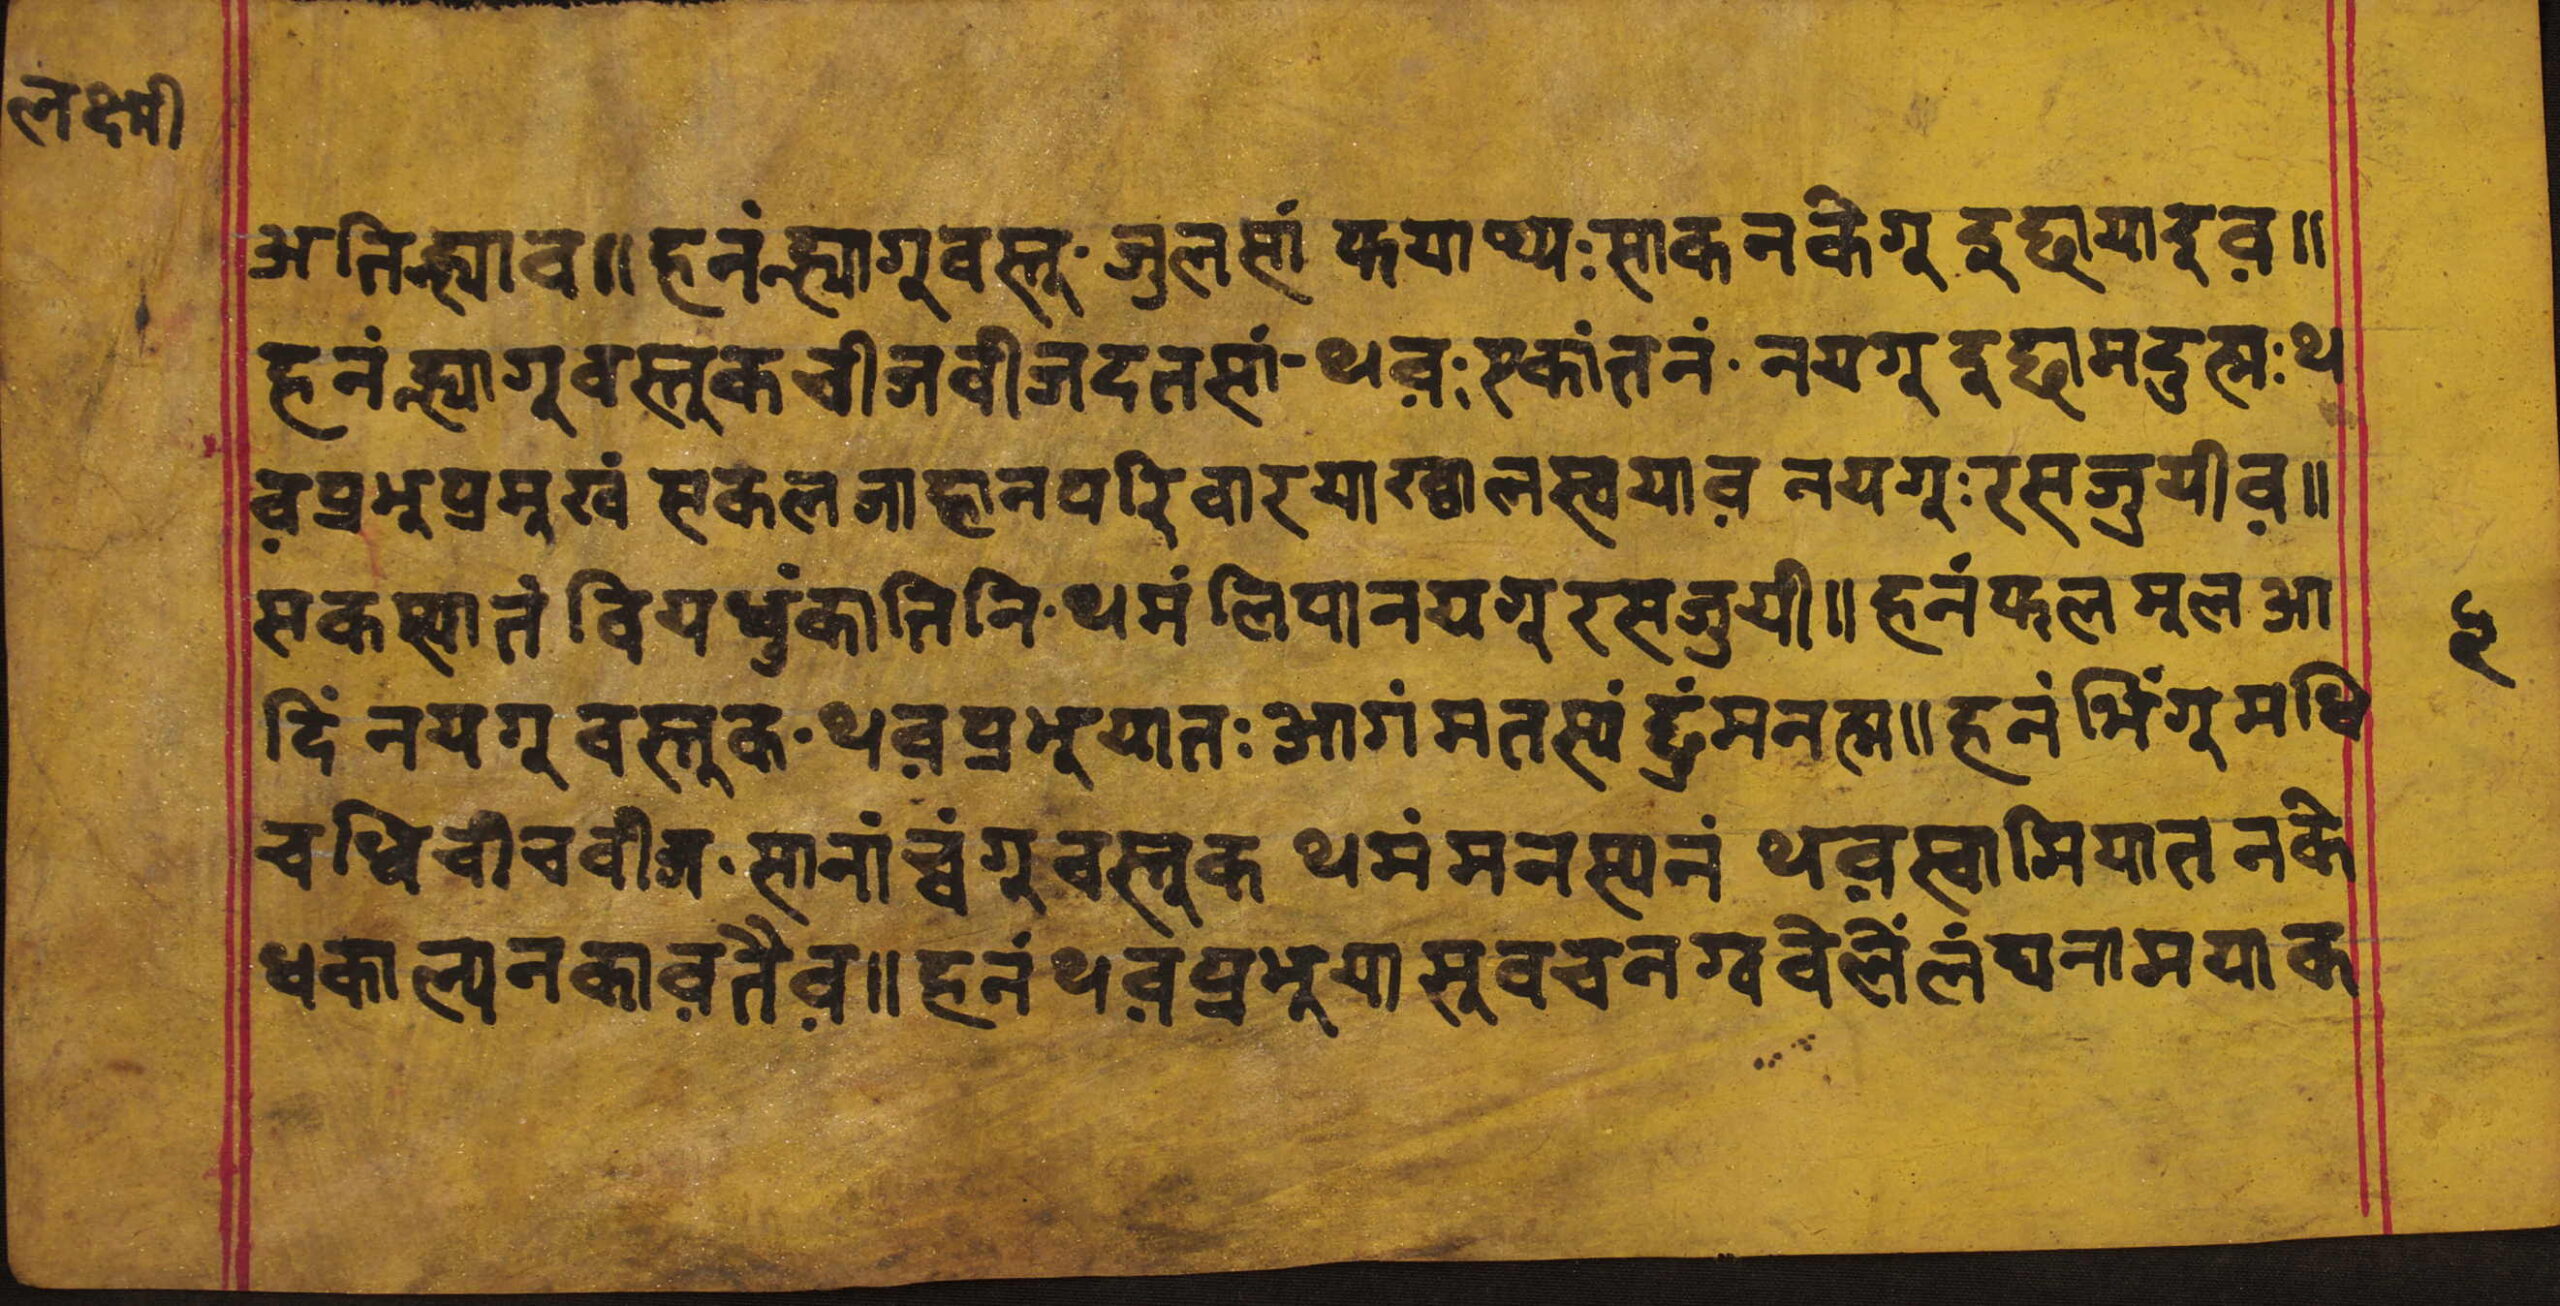 लक्ष्मी
अतिन्ह्याव॥ हनंन्ह्यागूवस्तू· जुलसां फयाथ्यःसाकनकेगू दुह्मायादूव़॥
हनंन्ह्यागूवस्तुकचीजवीजदतसां-थव़ःस्कांतनं·नयगू दूह्मामदुत्मःथ
व़प्रभूप्रमूखं सकलजाहानपरिवारयाख्वालस्वयाव़ नयगूःरसजुयीव़॥
सकस्यातं वियधुंकातिनि·थमं लिपानयगूरसजुयी॥ हनंफलमूलआ
दिं नयगूवस्तुक·थव़प्रभूयातः आगंमतस्यं द्रुंमनत्म॥ हनंभिंगूमथि
चथ्विचीचवीज·सानांच्वंगूवस्तुक थमंमनस्यनं थव़स्वामियातनके
धकाल्यनकाव़तैव़॥ हनंथव़प्रभूयासूवचनग्ववेलेंलंघनामयाक
३